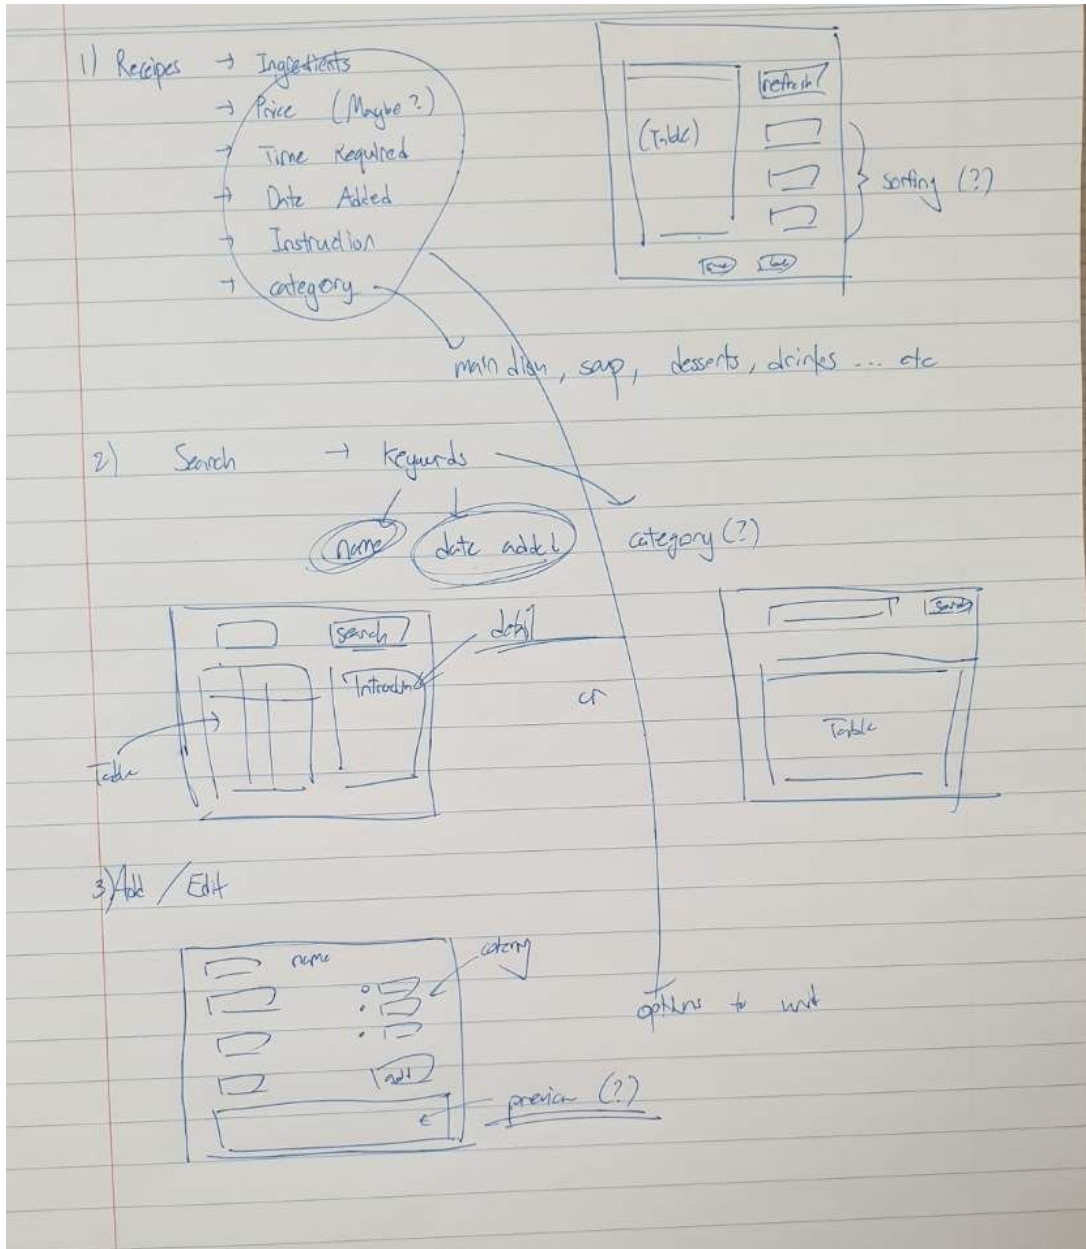 1) Recipes → Ingredients
→ Price (Maybe?)
→ Time Required
→ Date Added
→ Instruction
→ category
(Table)
refresh
sorting (?)
main dish, soup, desserts, drinks ... etc
2) Search → Keywords
name
date added
category (?)
search
detail
Table
or
Search
Table
3) Add / Edit
name
add
preview (?)
options to